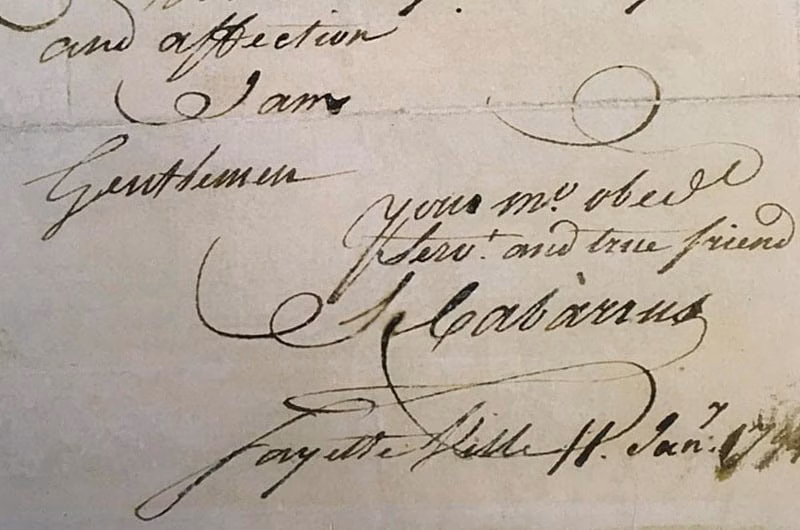 and affection
I am
Gentlemen
Your mo. obedt
Servt. and true friend
S Cabàrrus
Fayette Ville 11. Jany.